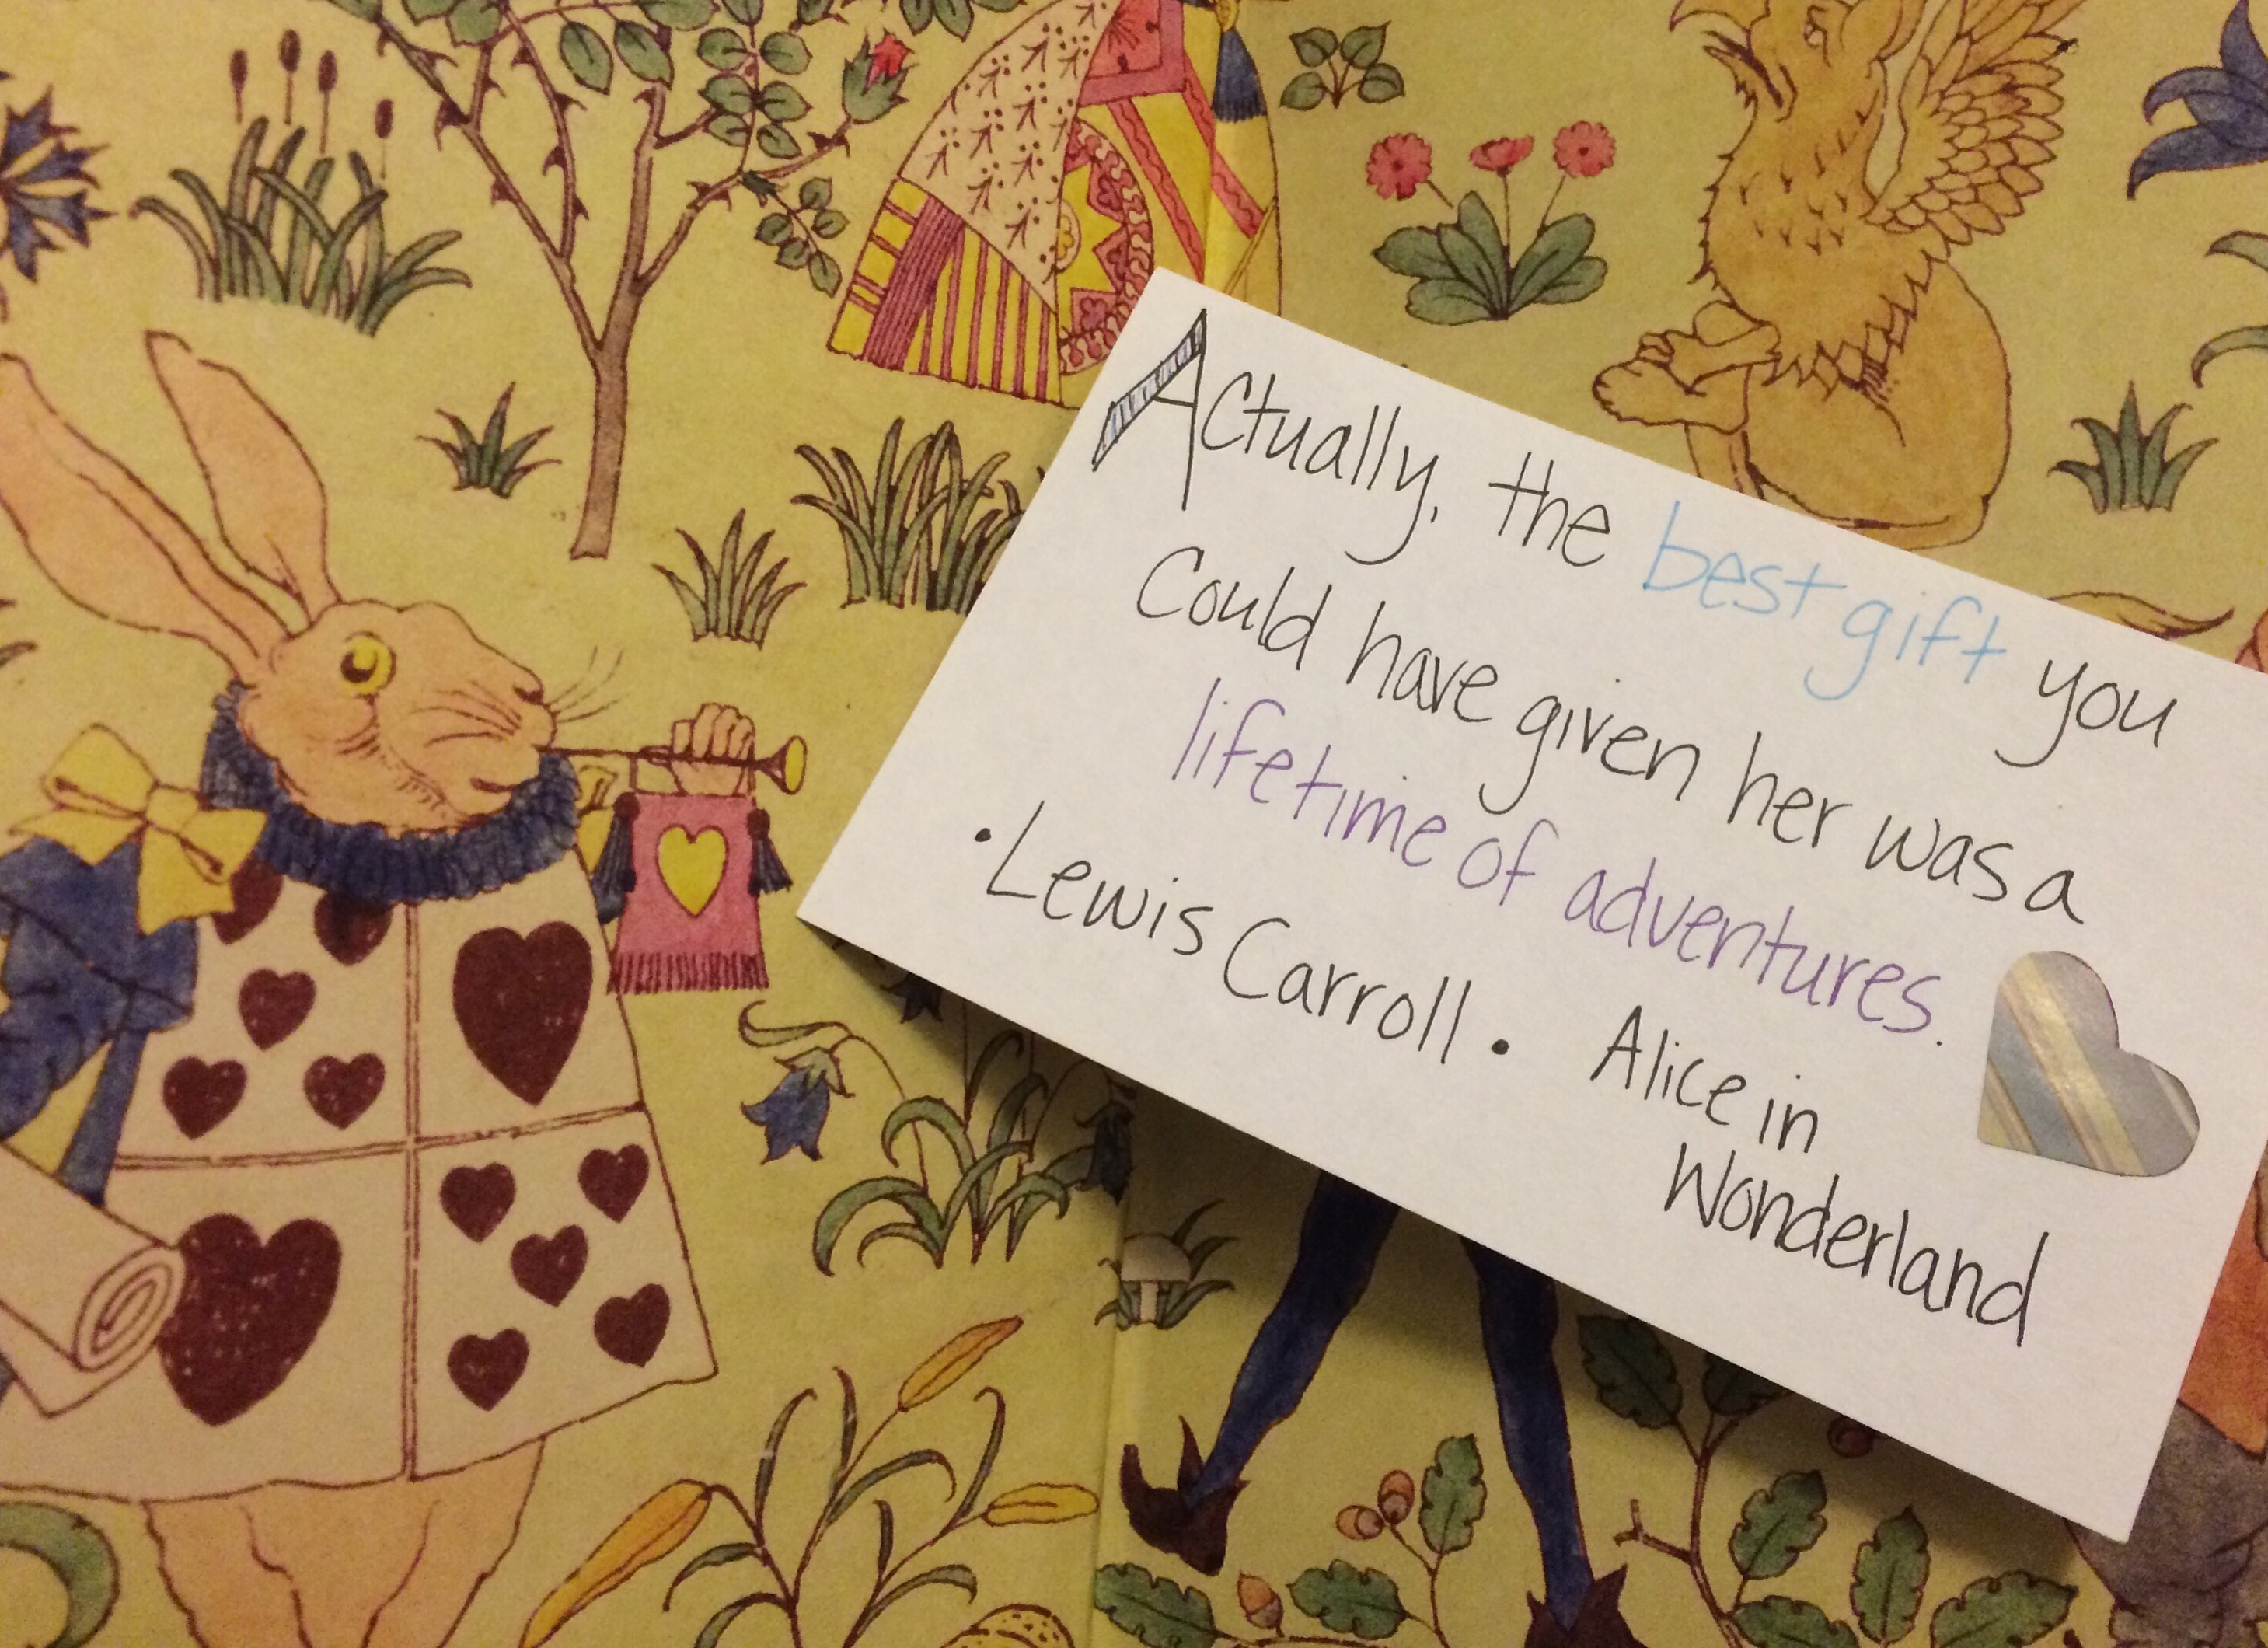 Actually, the best gift you
Could have given her was a
lifetime of adventures.
·Lewis Carroll· Alice in
Wonderland